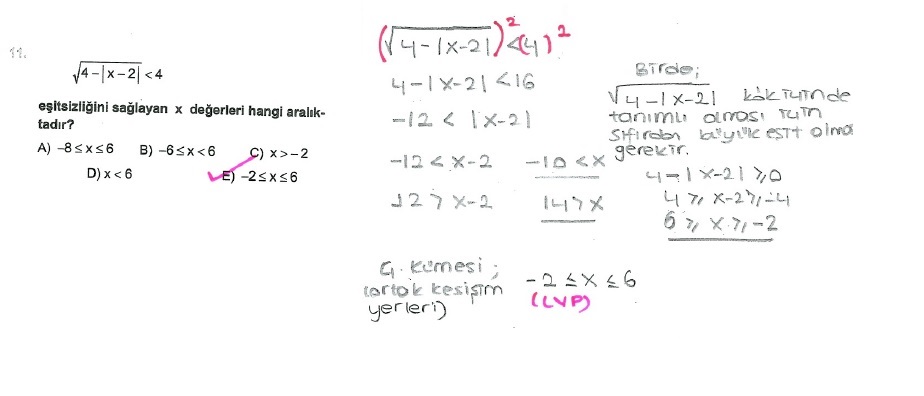 11.
√4-|x-2| < 4
eşitsizliğini sağlayan x değerleri hangi aralık-
tadır?
A) -8≤x≤6 B) -6≤x<6 C) x>-2
D) x<6 E) -2≤x≤6
(√4-|x-2|)² < (4)²
4-|x-2| < 16
-12 < |x-2|
-12 < x-2 -10 < x
12 > x-2 14 > x
Birde;
√4-|x-2| kök içinde
tanımlı olması için
sıfırdan büyük eşit olma
gerekir.
4-|x-2| ≥ 0
4 ≥ x-2 ≥ -4
6 ≥ x ≥ -2
Ç. Kümesi;
(ortak kesişim
yerleri)
-2 ≤ x ≤ 6
(LVP)